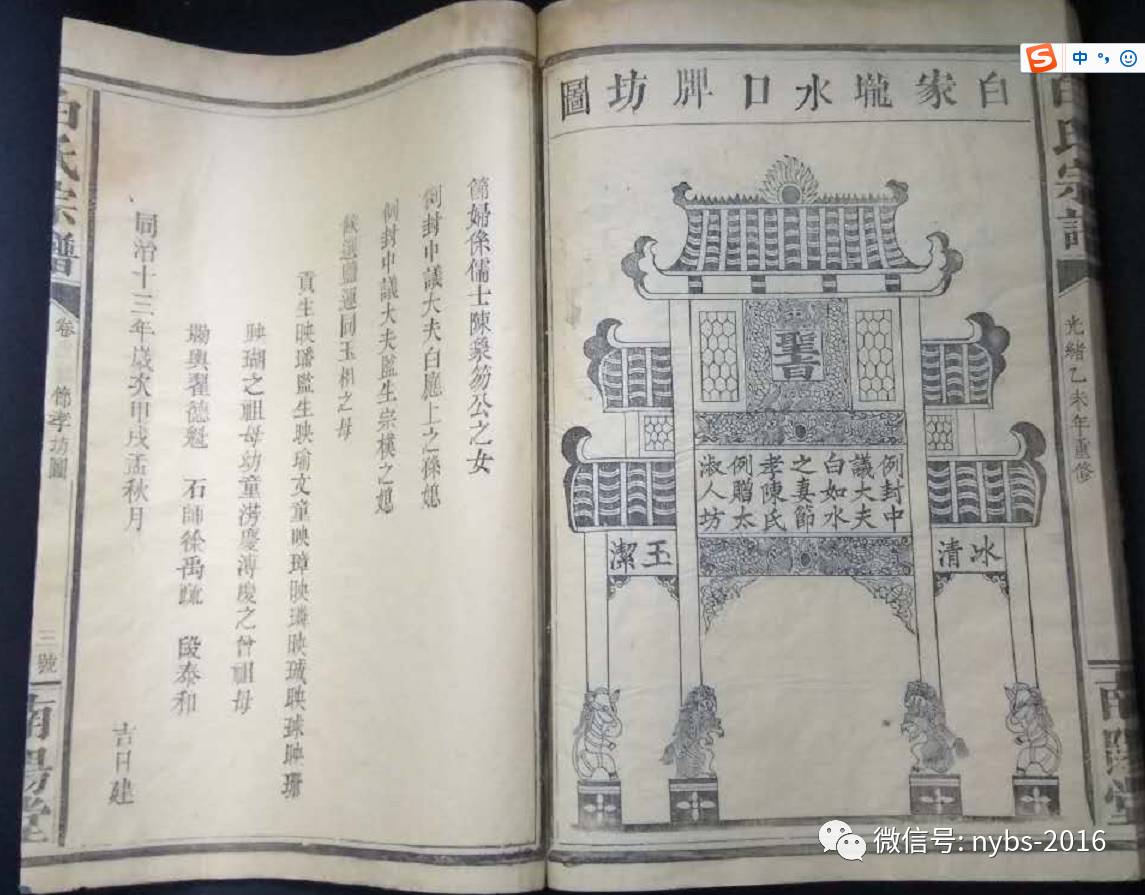 白家壠水口牌坊圖
聖旨
例封中
議大夫
白如水
之妻節
孝陳氏
例贈太
淑人坊
冰清
玉潔
白氏宗譜
光緒乙未年重修
南陽堂
節婦係儒士陳彖笏公之女
例封中議大夫白廳上之孫媳
例封中議大夫監生宗樸之媳
候選鹽運同玉相之母
貢生映璠監生映瑜文童映璋映璘映珹映球映珊
映瑚之祖母幼童澇慶溥慶之曾祖母
石師徐禹疏 段泰和
同治十三年歲次甲戌孟秋月
吉日建
白氏宗譜
卷
節孝坊圖
三號
南陽堂
中
微信号: nybs-2016